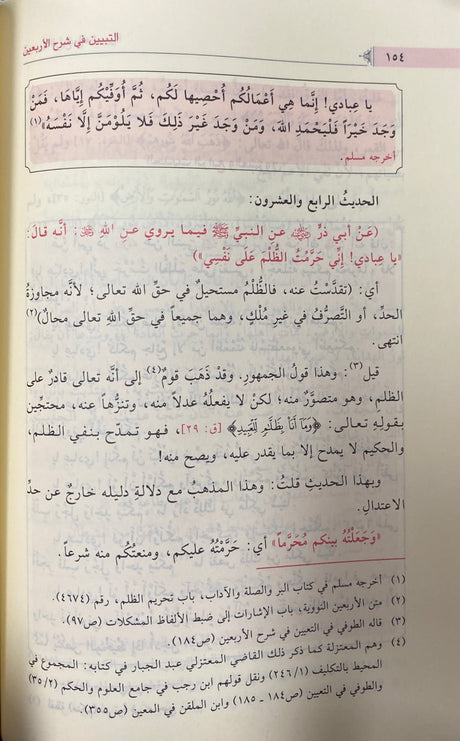 التبيين في شرح الأربعين
١٥٤
يا عبادي! إِنَّما هِي أَعْمَالُكُم أُحْصِيها لَكُم، ثُمَّ أُوَفِّيْكُم إِيَّاهَا، فَمَنْ
وَجَدَ خَيْرَاً فَلْيَحْمَدِ اللهَ، وَمَنْ وَجَدَ غَيْرَ ذَلِكَ فَلَا يَلُوْمَنَّ إِلَّا نَفْسَهُ»(١)
أخرجه مسلم.
الحديثُ الرابع والعشرون:
(عَنْ أبي ذرٍّ ﷺ عَنِ النبيِّ ﷺ فيـمـا يـروي عَـنِ اللهِ ﷻ: أنَّه قالَ:
«يا عِبادي! إِنِّي حَرَّمْتُ الظُّلْمَ عَلَى نَفْسِي»)
أي: (تقدَّسْتُ عنه، فالظُّلْمُ مستحيلٌ في حقِّ الله تعالى؛ لأنَّه مجاوزةُ
الحدِّ، أو التَّصرُّفُ في غيرِ مُلْكٍ، وهما جميعاً في حقِّ الله تعالى محالٌ)(٢)
انتهى.
قيل(٣): وهذا قولُ الجمهورِ. وقدْ ذَهَبَ قومٌ(٤) إلى أنَّه تعالى قادرٌ على
الظلمِ، وهو متصوَّرٌ منه؛ لكنْ لا يفعلُهُ عدلاً منه، وتنزُّهاً عنه، محتجِّين
بقولِهِ تعالى: ﴿وَمَآ أَنَا۠ بِظَلَّـٰمٍ لِّلْعَبِيدِ﴾ [ق: ٢٩]، فـهـو تـمـدّح بـنـفـي الـظلـم،
والحكيم لا يمدح إلا بما يقدر عليه، ويصح منه!
وبهذا الحديثِ قلتُ: وهذا المذهبُ مع دلالةِ دليله خارجٌ عن حدِّ
الاعتدالِ.
«وَجَعَلْتُهُ بينكم مُحَرَّماً» أي: حَرَّمْتُهُ عليكم، ومنعتُكُم منه شرعاً.
(١) أخرجه مسلم في كتاب البر والصلة والآداب، باب تحريم الظلم، رقم (٤٦٧٤).
(٢) متن الأربعين النووية، باب الإشارات إلى ضبط الألفاظ المشكلات (ص٩٧).
(٣) قاله الطوفي في التعيين في شرح الأربعين (ص١٨٤).
(٤) وهم المعتزلة كما ذكر ذلك القاضي المعتزلي عبد الجبار في كتابه: المجموع في
المحيط بالتكليف (٢٤٦/١) ونقل قولهم ابن رجب في جامع العلوم والحكم (٣٥/٢)
والطوفي في التعيين (ص١٨٤ ـ ١٨٥) وابن الملقن في المعين (ص٣٥٥).